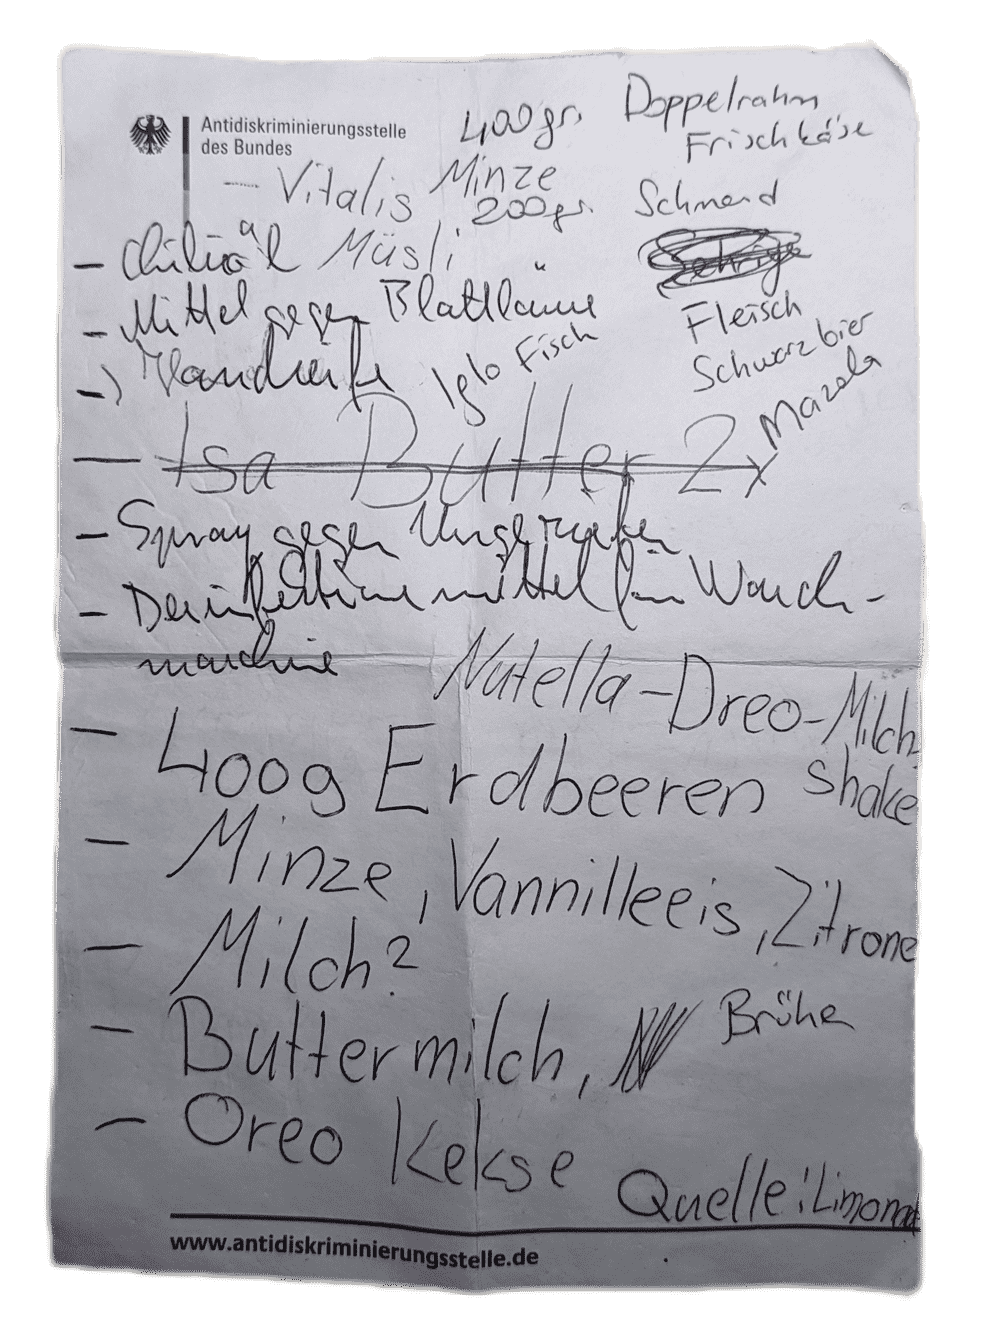 Antidiskriminierungsstelle
des Bundes
400gr. Doppelrahm
Frischkäse
– Vitalis Minze
200gr. Schmand
Müsli
– Mittel gegen Blattläuse
Fleisch
– Handseife
Iglo Fisch
Schwarzbier
Mazola
– Isa Butter 2x
– Spray gegen Ungeziefer
– Desinfektionsmittel für Wasch-
maschine
Nutella-Oreo-Milch
shake
– 400g Erdbeeren
– Minze, Vannilleeis, Zitrone
– Milch?
– Buttermilch,
Brühe
– Oreo Kekse
Quelle:
www.antidiskriminierungsstelle.de